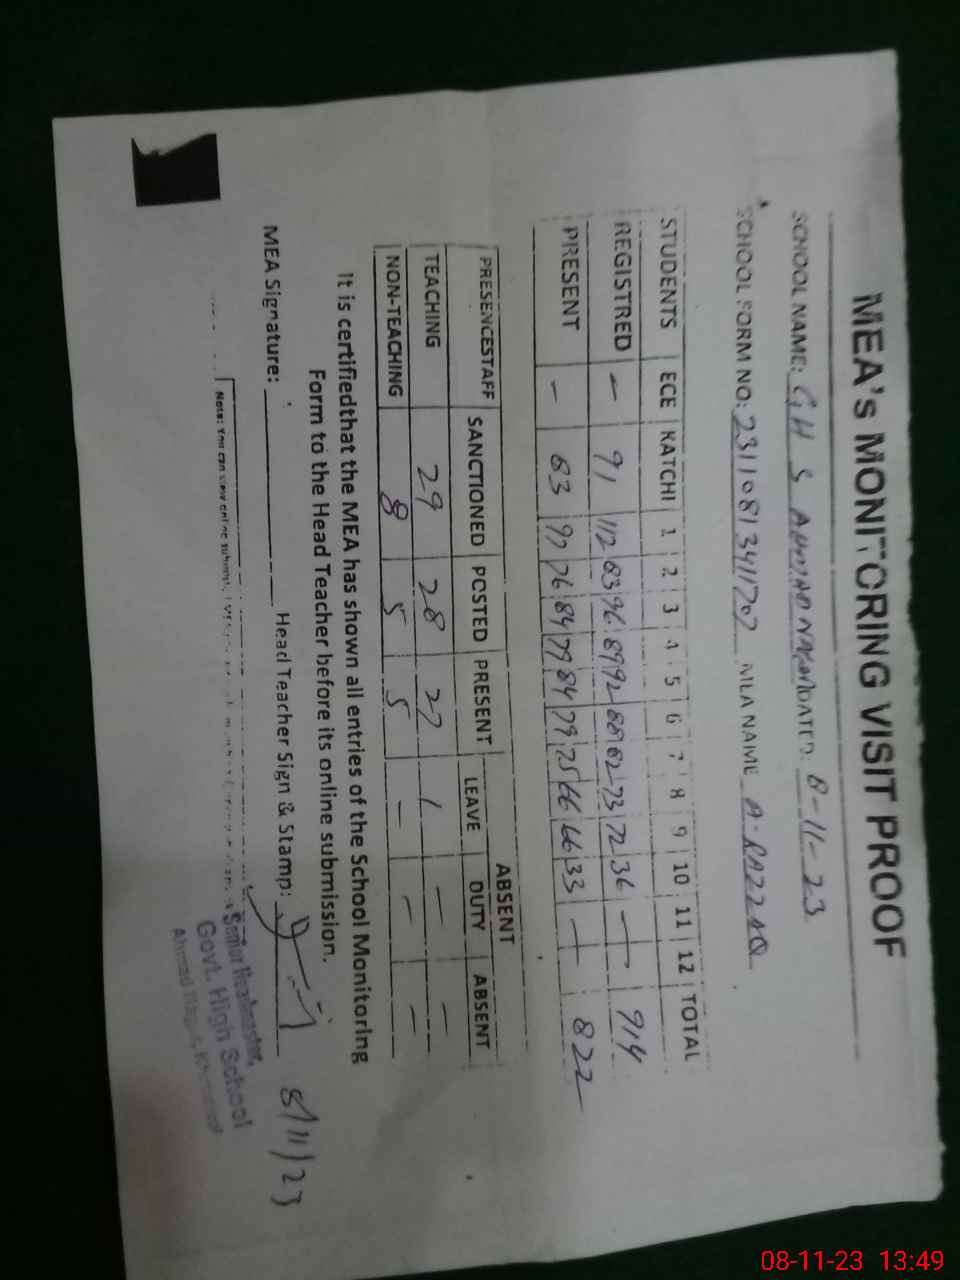 MEA's MONITORING VISIT PROOF
SCHOOL NAME: GHS DATED: 8-11-23
SCHOOL FORM NO: MEA NAME A. RAZZAQ
STUDENTS ECE KATCHI 1 2 3 4 5 6 7 8 9 10 11 12 TOTAL
REGISTRED - 91 112 83 96 89 92 88 82 73 72 36 - 914
PRESENT - 83 97 76 84 79 84 79 75 66 66 33 - 822
ABSENT
PRESENCESTAFF SANCTIONED POSTED PRESENT LEAVE DUTY ABSENT
TEACHING 29 28 27 1 - -
NON-TEACHING 8 5 5 - - -
It is certifiedthat the MEA has shown all entries of the School Monitoring
Form to the Head Teacher before its online submission.
MEA Signature: Head Teacher Sign & Stamp: 8/11/23
Note: You can view online
Senior Headmaster,
Govt. High School
Ahmad Nagar,
08-11-23 13:49